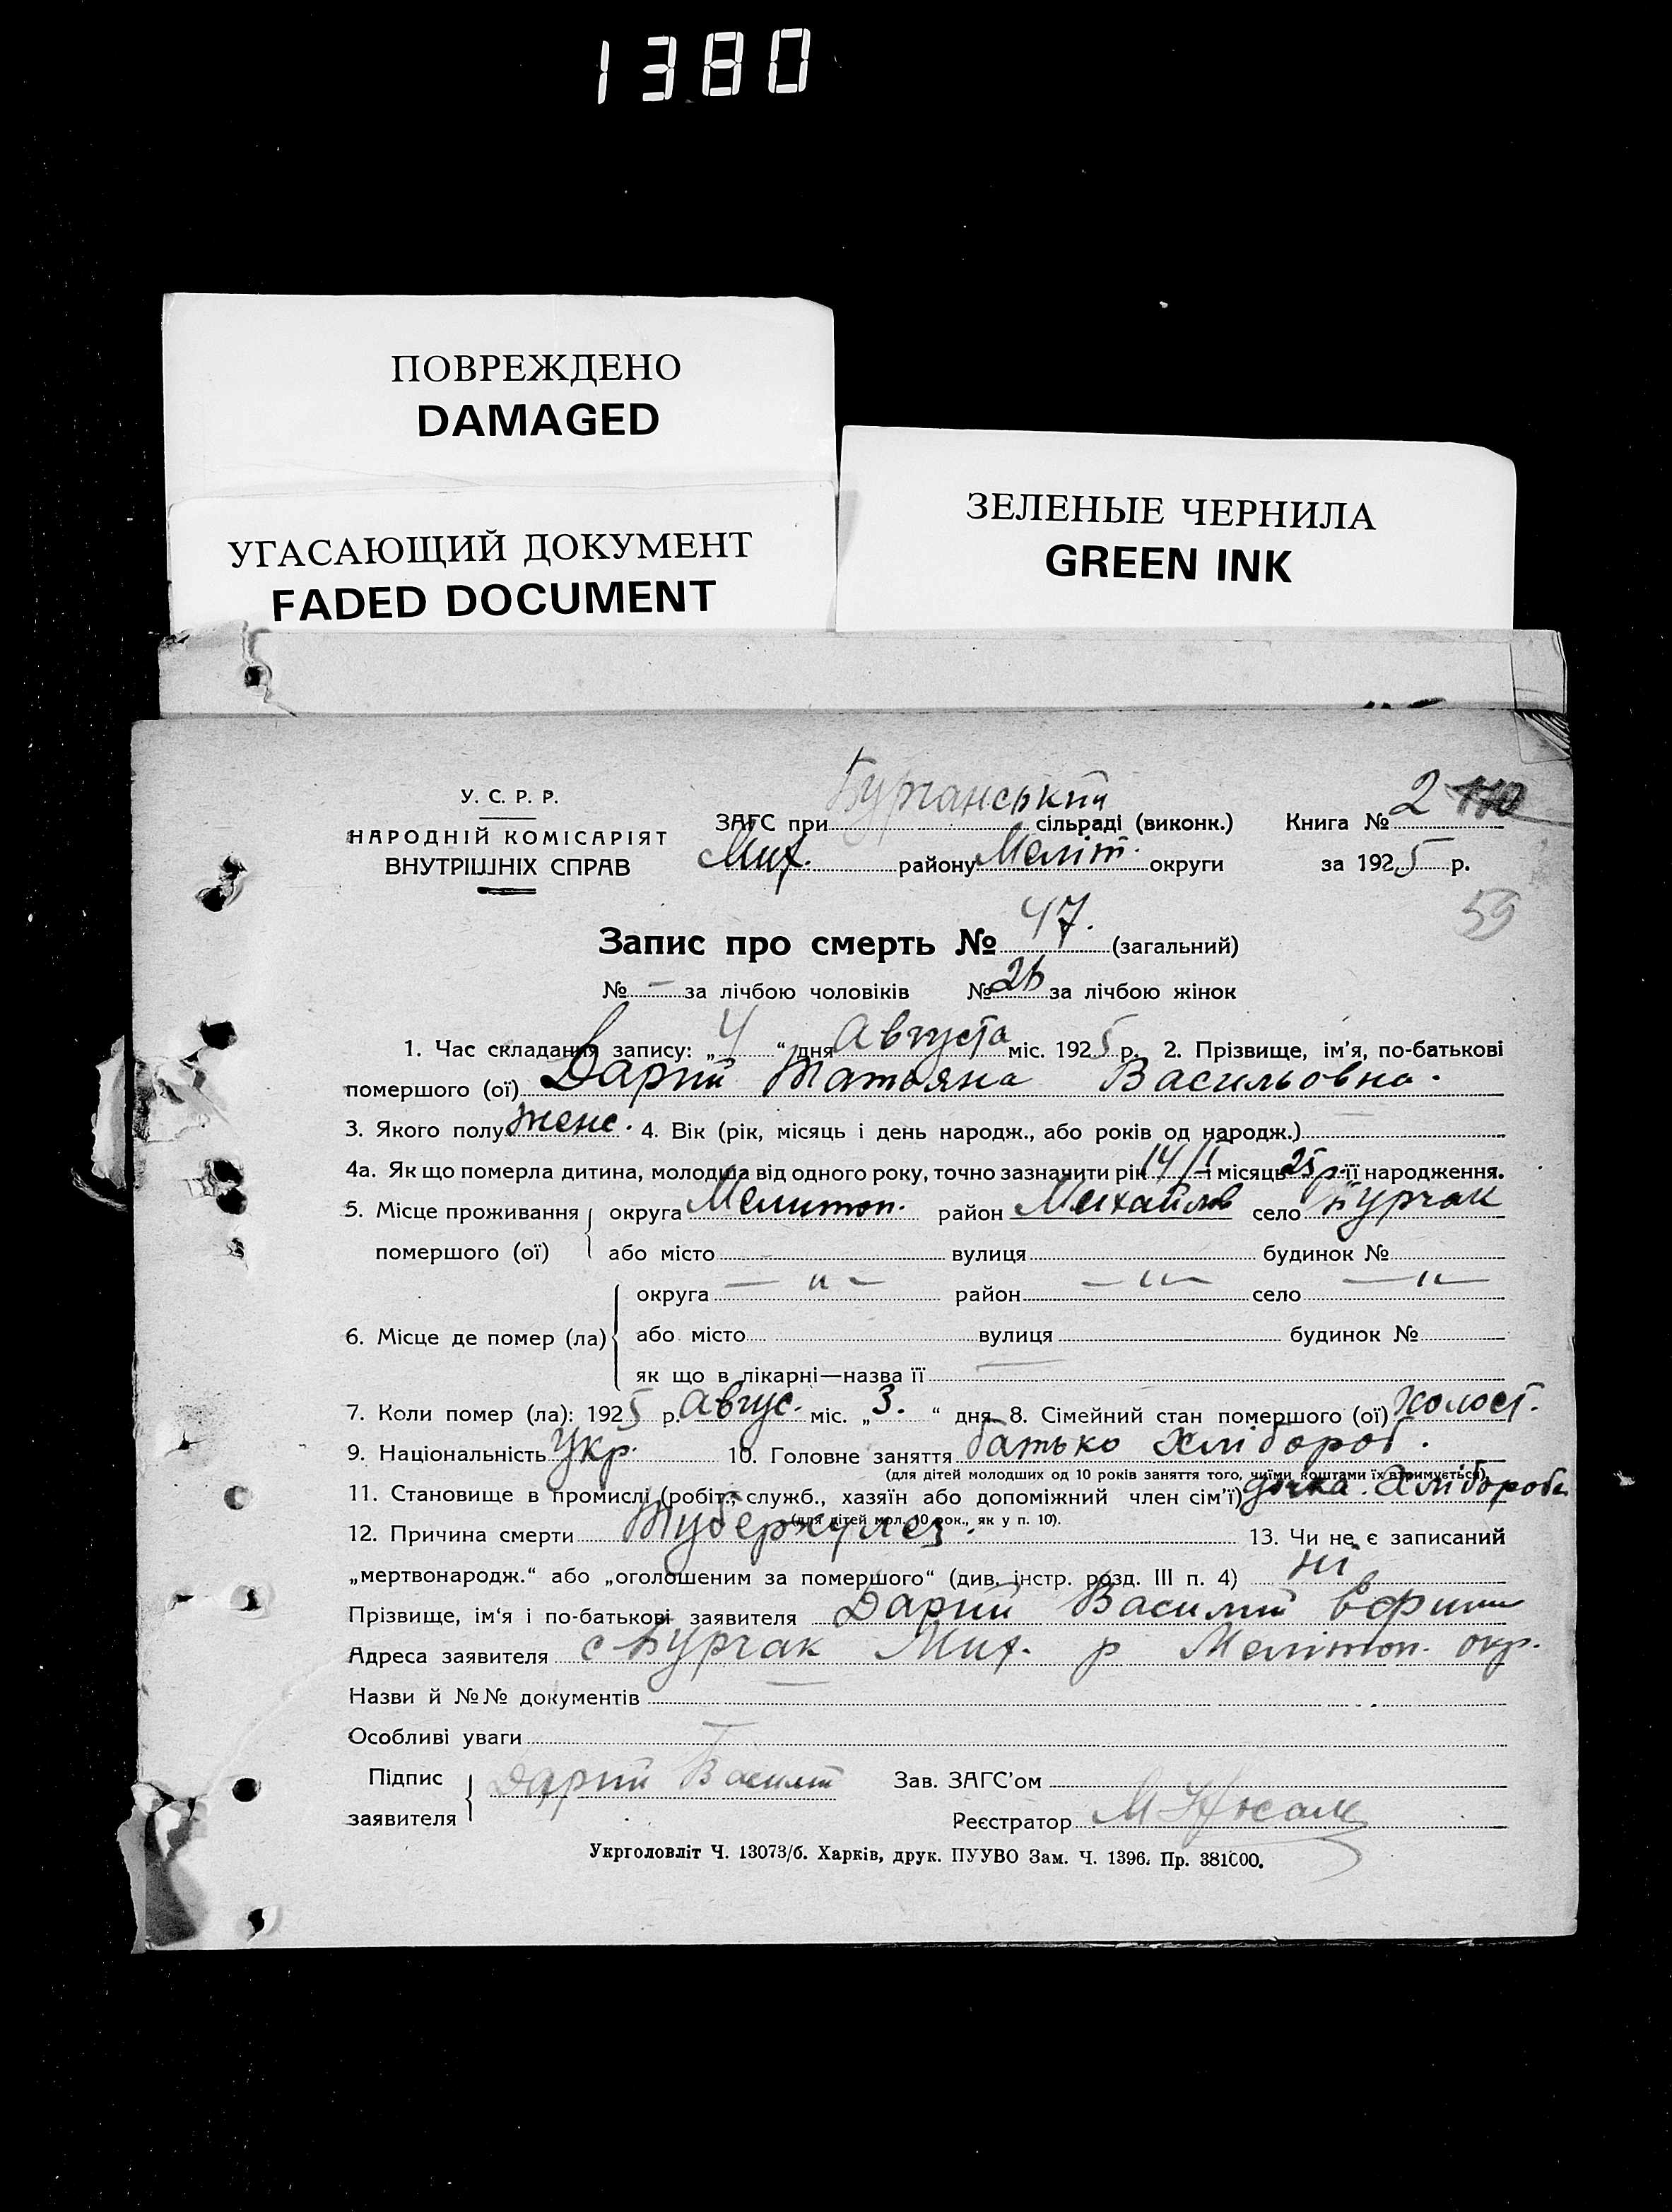 1380
ПОВРЕЖДЕНО
DAMAGED
УГАСАЮЩИЙ ДОКУМЕНТ
FADED DOCUMENT
ЗЕЛЕНЫЕ ЧЕРНИЛА
GREEN INK
У. С. Р. Р.
НАРОДНІЙ КОМІСАРІЯТ
ВНУТРІШНІХ СПРАВ
ЗАГС при Бурчанський сільраді (виконк.)
Мих. району Меліт. округи
Книга № 2
за 1925 р.
59
Запис про смерть № 47. (загальний)
№ — за лічбою чоловіків № 26 за лічбою жінок
1. Час складання запису: „4“ дня Августа міс. 1925 р. 2. Прізвище, ім’я, по-батькові
помершого (ої) Дарий Татьяна Васильовна.
3. Якого полу женс. 4. Вік (рік, місяць і день народж., або років од народж.)
4а. Як що померла дитина, молодша від одного року, точно зазначити рік 14/І місяць 25 р. її народження.
5. Місце проживання помершого (ої) округа Мелитоп. район Михайлов село Бурчак
або місто вулиця будинок №
6. Місце де помер (ла) округа — „ — район — „ — село — „ —
або місто вулиця будинок №
як що в лікарні—назва її —
7. Коли помер (ла): 1925 р. Авгус. міс. „3.“ дня 8. Сімейний стан помершого (ої) холост.
9. Національність Укр. 10. Головне заняття батько хлібороб.
(для дітей молодших од 10 років заняття того, чиїми коштами їх втримується).
11. Становище в промислі (робіт., служб., хазяїн або допоміжний член сім’ї) дочка. Хлібороба
(для дітей мол. 10 рок., як у п. 10).
12. Причина смерти Туберкулез. 13. Чи не є записаний
„мертвонародж.“ або „оголошеним за помершого“ (див. інстр. розд. III п. 4) ні
Прізвище, ім‘я і по-батькові заявителя Дарий Василий
Адреса заявителя с Бурчак Мих. р Мелітоп. окр.
Назви й №№ документів —
Особливі уваги —
Підпис заявителя Дарий Василий
Зав. ЗАГС’ом
Реєстратор
Укрголовліт Ч. 13073/б. Харків, друк. ПУУВО Зам. Ч. 1396. Пр. 381000.